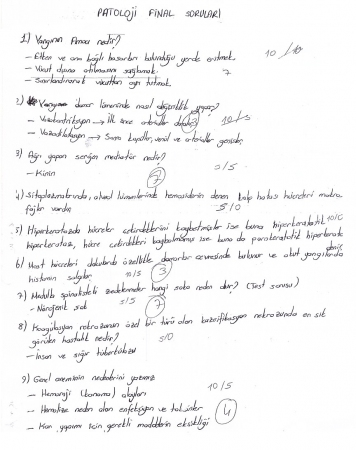 PATOLOJİ FİNAL SORULARI
1) Yangının Amacı nedir? 10
- Etken ve ona bağlı hasarları bulunduğu yerde eritmek
- Vücut dışına atılmasını sağlamak 7
- Sınırlandırarak vücuttan ayrı tutmak
2) damar lümeninde nasıl değişiklik yapar?
- Vazokontriksiyon → İlk önce arterioller daralır 10/5
- Vazodilatasyon → Sonra kapiller, venül ve arterioller genişler
3) Ağrı yapan seröjen mediatör nedir? 5/5
- Kinin 7
4) Sitoplazmalarında, alveol lümenlerinde hemosiderin denen kalp hatası hücreleri makro
fajlar vardır 5/0
5) Hiperkeratozda hücreler çekirdeklerini kaybetmişler ise buna hiperkeratotik 10/0
hiperkeratoz, hücre çekirdekleri kaybolmamış ise buna da parakeratotik hiperkeratoz
denir.
6) Mast hücreleri dokularda özellikle damarlar çevresinde bulunur ve akut yangılarda
histamin salgılar 10/5 3
7) Medulla spinalisteki zedelenmeler hangi şoka neden olur? (Test sorusu)
- Nörojenik şok 5/5 7
8) Koagülasyon nekrozunun özel bir türü olan kazeifikasyon nekrozunda en sık
görülen hastalık nedir? 5/0
- İnsan ve sığır tüberkülozu
9) Genel aneminin nedenlerini yazınız 10/5
- Hemoraji (kanama) olayları
- Hemolize neden olan enfeksiyon ve toksinler 4
- Kan yapımı için gerekli maddelerin eksikliği